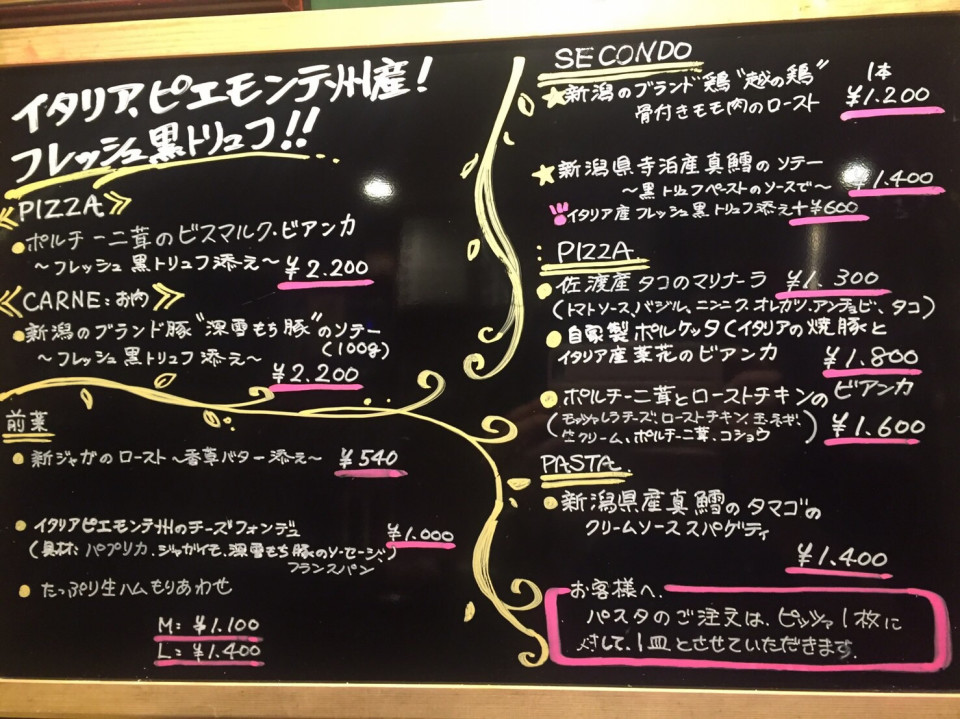 イタリア、ピエモンテ州産!
フレッシュ黒トリュフ!!
≪PIZZA≫
●ポルチーニ茸のビスマルク・ビアンカ
〜フレッシュ黒トリュフ添え〜 ¥2.200
≪CARNE:お肉≫
●新潟のブランド豚“深雪もち豚”のソテー
(100g)
〜フレッシュ黒トリュフ添え〜
¥2.200
前菜
●新ジャガのロースト〜香草バター添え〜 ¥540
●イタリアピエモンテ州のチーズフォンデュ ¥1.000
(具材:パプリカ、ジャガイモ、深雪もち豚のソーセージ、
フランスパン)
●たっぷり生ハムもりあわせ
M:¥1.100
L:¥1.400
SECONDO
★新潟のブランド鶏“越の鶏” 1本
骨付きモモ肉のロースト ¥1.200
★新潟県寺泊産真鱈のソテー
〜黒トリュフペーストのソースで〜 ¥1.400
イタリア産フレッシュ黒トリュフ添え+¥600
PIZZA
●佐渡産タコのマリナーラ ¥1.300
(トマトソース、バジル、ニンニク、オレガノ、アンチョビ、タコ)
●自家製ポルケッタ(イタリアの焼豚と
イタリア産菜花のビアンカ ¥1.800
●ポルチーニ茸とローストチキンのビアンカ
(モッツァレラチーズ、ローストチキン、玉ネギ、
生クリーム、ポルチーニ茸、コショウ) ¥1.600
PASTA
●新潟県産真鱈のタマゴの
クリームソーススパゲティ
¥1.400
お客様へ
パスタのご注文は、ピッツァ1枚に
対して、1皿とさせていただきます。